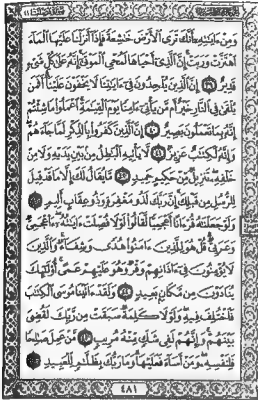 وَمِنْ ءَايَٰتِهِۦٓ أَنَّكَ تَرَى ٱلْأَرْضَ خَٰشِعَةً فَإِذَآ أَنزَلْنَا عَلَيْهَا ٱلْمَآءَ
ٱهْتَزَّتْ وَرَبَتْ إِنَّ ٱلَّذِىٓ أَحْيَاهَا لَمُحْىِ ٱلْمَوْتَىٰٓ إِنَّهُۥ عَلَىٰ كُلِّ شَىْءٍ
قَدِيرٌ ٣٩ إِنَّ ٱلَّذِينَ يُلْحِدُونَ فِىٓ ءَايَٰتِنَا لَا يَخْفَوْنَ عَلَيْنَآ أَفَمَن
يُلْقَىٰ فِى ٱلنَّارِ خَيْرٌ أَم مَّن يَأْتِىٓ ءَامِنًا يَوْمَ ٱلْقِيَٰمَةِ ٱعْمَلُوا۟ مَا شِئْتُمْ
إِنَّهُۥ بِمَا تَعْمَلُونَ بَصِيرٌ ٤٠ إِنَّ ٱلَّذِينَ كَفَرُوا۟ بِٱلذِّكْرِ لَمَّا جَآءَهُمْ
وَإِنَّهُۥ لَكِتَٰبٌ عَزِيزٌ ٤١ لَّا يَأْتِيهِ ٱلْبَٰطِلُ مِنۢ بَيْنِ يَدَيْهِ وَلَا مِنْ
خَلْفِهِۦ تَنزِيلٌ مِّنْ حَكِيمٍ حَمِيدٍ ٤٢ مَّا يُقَالُ لَكَ إِلَّا مَا قَدْ قِيلَ
لِلرُّسُلِ مِن قَبْلِكَ إِنَّ رَبَّكَ لَذُو مَغْفِرَةٍ وَذُو عِقَابٍ أَلِيمٍ ٤٣
وَلَوْ جَعَلْنَٰهُ قُرْءَانًا أَعْجَمِيًّا لَّقَالُوا۟ لَوْلَا فُصِّلَتْ ءَايَٰتُهُۥٓ ءَا۬عْجَمِىٌّ
وَعَرَبِىٌّ قُلْ هُوَ لِلَّذِينَ ءَامَنُوا۟ هُدًى وَشِفَآءٌ وَٱلَّذِينَ
لَا يُؤْمِنُونَ فِىٓ ءَاذَانِهِمْ وَقْرٌ وَهُوَ عَلَيْهِمْ عَمًى أُو۟لَٰٓئِكَ
يُنَادَوْنَ مِن مَّكَانٍۭ بَعِيدٍ ٤٤ وَلَقَدْ ءَاتَيْنَا مُوسَى ٱلْكِتَٰبَ
فَٱخْتُلِفَ فِيهِ وَلَوْلَا كَلِمَةٌ سَبَقَتْ مِن رَّبِّكَ لَقُضِىَ
بَيْنَهُمْ وَإِنَّهُمْ لَفِى شَكٍّ مِّنْهُ مُرِيبٍ ٤٥ مَّنْ عَمِلَ صَٰلِحًا
فَلِنَفْسِهِۦ وَمَنْ أَسَآءَ فَعَلَيْهَا وَمَا رَبُّكَ بِظَلَّٰمٍ لِّلْعَبِيدِ ٤٦
٤٨١